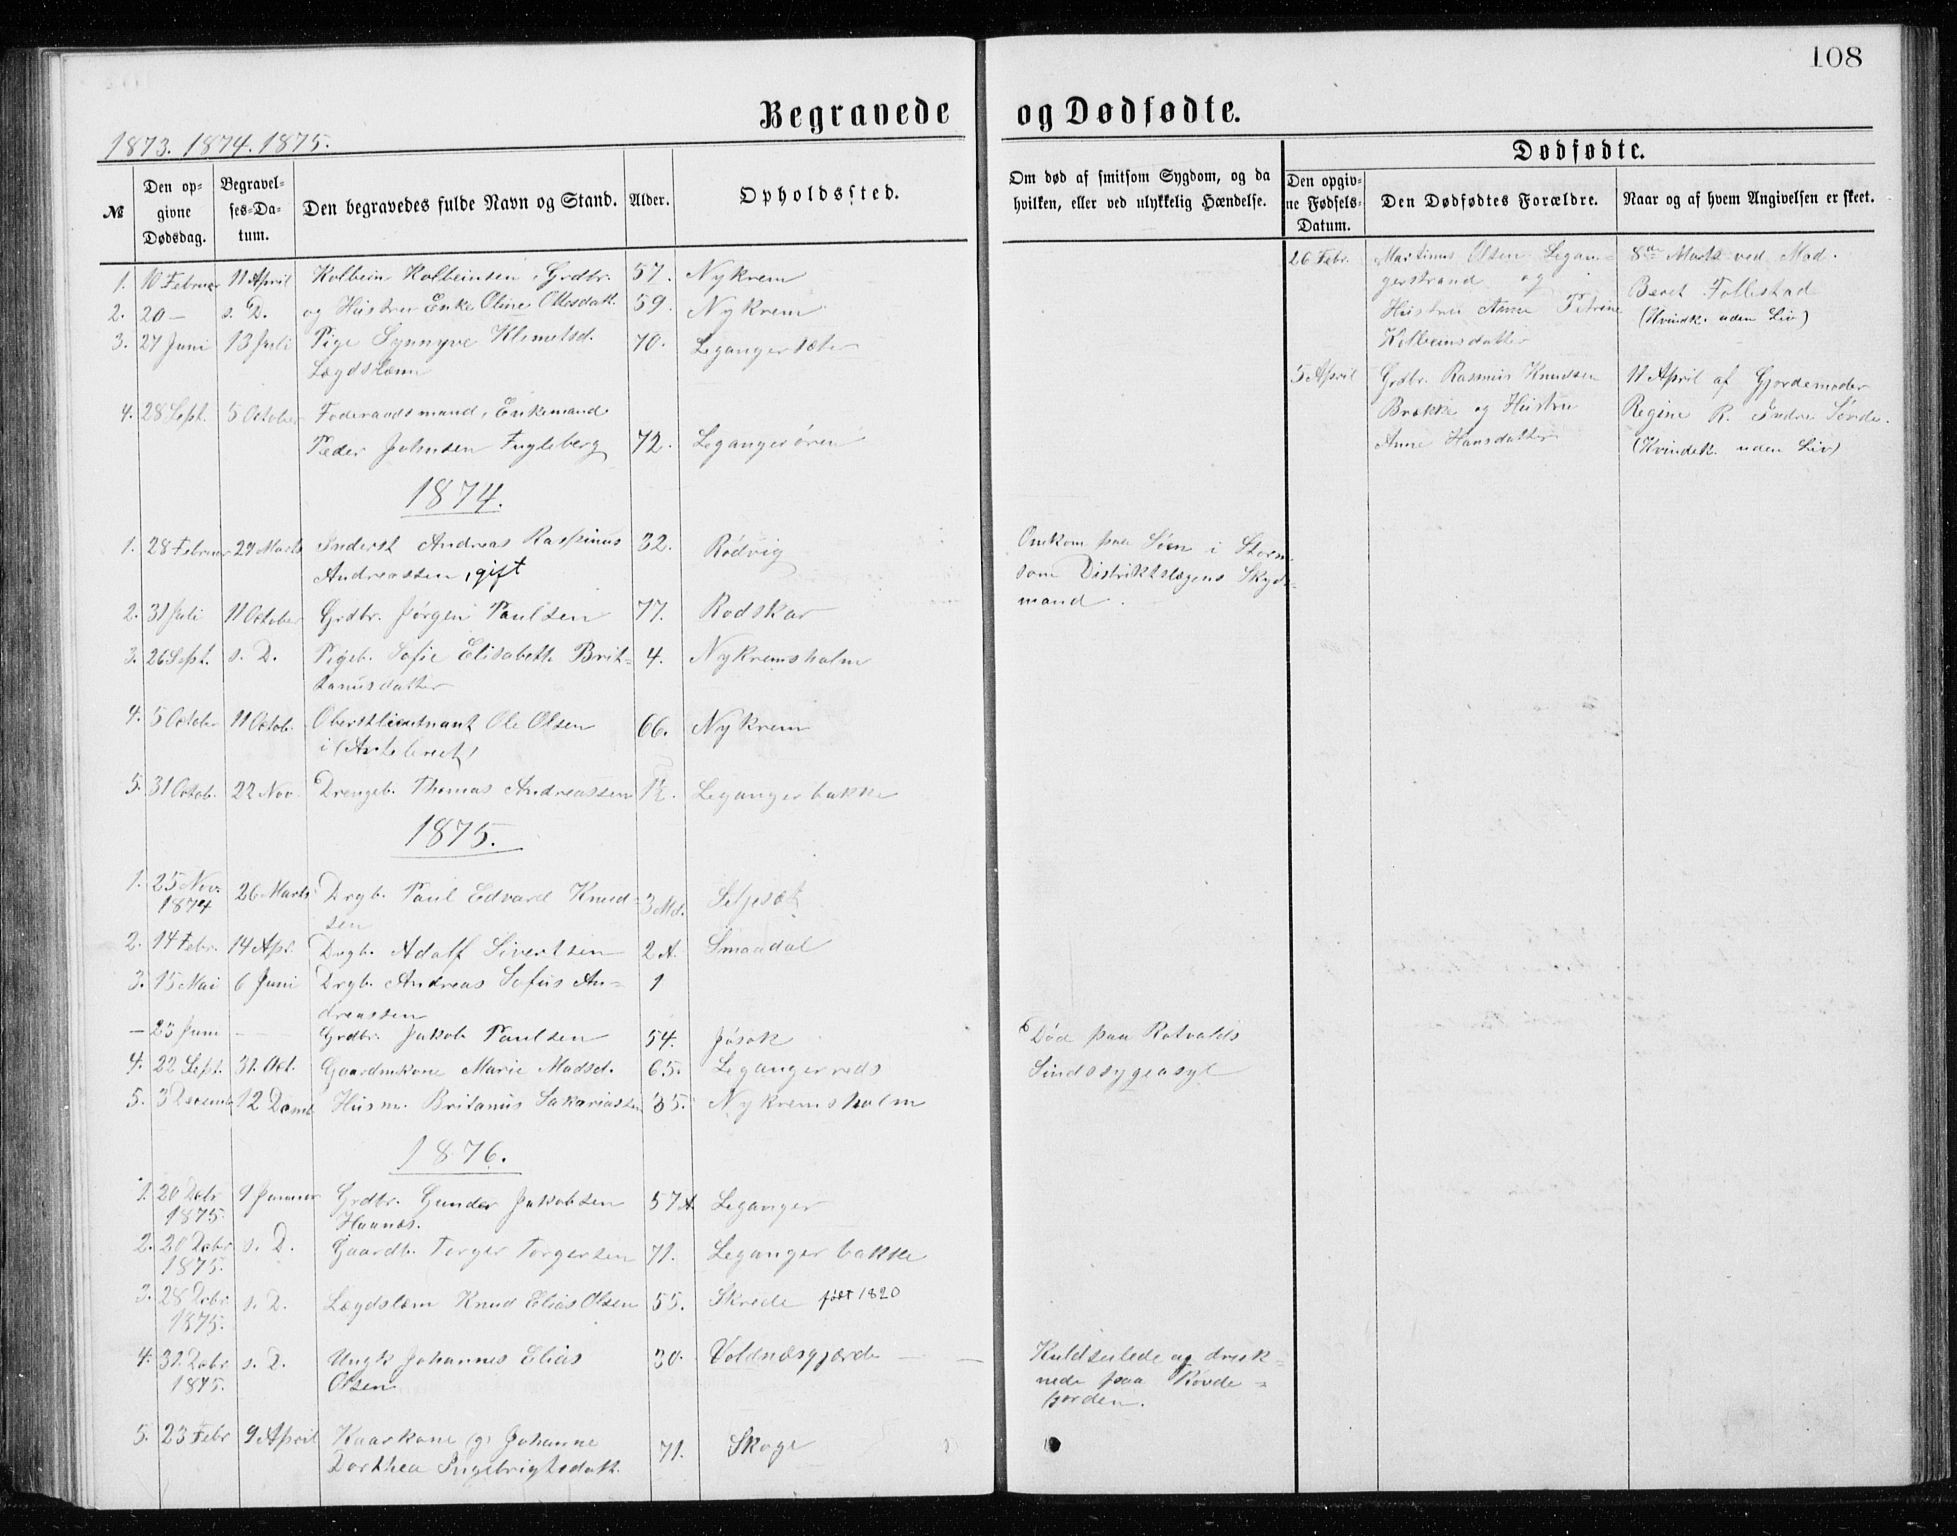 108
Begravede og Dødfødte.
1873. 1874. 1875.
Dødfødte.
№ Den opgivne Dødsdag. Begravelses-Datum. Den begravedes fulde Navn og Stand. Alder. Opholdssted. Om død af smitsom Sygdom, og da hvilken, eller ved ulykkelig Hændelse. Den opgivne Fødsels-Datum. Den Dødfødtes Forældre. Naar og af hvem Angivelsen er skeet.
1. 10 Februar 11 April Kolbein Kolbeinsen, Grdbr. 57. Nykrem
2. 20 — s. D. og Hustru Enke Oline Ottesdatt. 59. Nykrem
3. 27 Juni 13 Juli Pige Synnyve Klemetsd. 70. Legangersæter
Lægdslæm
4. 28 Sept. 5 October Foderaadsmand, Enkemand
Peder Johnsen Fugleberg 72. Legangersøren
26 Febr. Martinus Olsen Legan- 8de Marts ved Mad.
gerstrand og Beret Follestad
Hustru Anne Petrine (Kvindk. uden Liv)
Kolbeinsdatter
5 April Grdbr. Rasmus Knudsen 11 April af Gjordemoder
Brekke og Hustru Regine R. Indre Sørde.
Anne Hansdatter (Kvindek. uden Liv)
1874.
1. 28 Februar 29 Marts Inderst Andreas Raspinus 32. Rødvig Omkom paa Søen i Storm
Andreassen, gift som Distriktslægens Skyds-
mand.
2. 31 Juli 11 October Grdbr. Jørgen Paulsen 77. Rodskar
3. 26 Sept. s. D. Pigeb. Sofie Elisabeth Brit- 4. Nykremsholm
tanusdatter
4. 5 October 11 Octob. Oberstlieutnant Ole Olsen 66. Nykrem
5. 31 Octob. 22 Nov. Drengeb. Thomas Andreassen ½. Legangerbakke
1875.
1. 25 Nov. 26 Marts Drgb. Paul Edvard Knud- 3 Md. Seljesæt
1874 sen
2. 14 Febr. 14 Apr. Drgb. Adolf Sivertsen 2 A. Smaadal
3. 15 Mai 6 Juni Drgb. Andreas Sofus An- 1
dreassen
— 23 Juni — Grdbr. Jakob Paulsen 54. Jøsok Døde paa Rotvolds
4. 22 Sept. 31. Oct. Gaardmkone Marie Madsd. 65. Legangerreds Sindssygeasyl
5. 3 December 12 Decmb Husm. Britanus Sakariassen 35. Nykremsholm
1876.
1. 20 Decbr 9 Januar Grdbr. Gunder Jakobsen 57 A Leganger
1875. Haanes.
2. 20 Decbr s. D. Gaardb. Torger Torgersen 71. Legangerbakke
1875.
3. 28 Decbr s. D. Lægdslæm Knud Elias Olsen 55. Skrede født 1820
1875.
4. 31. Decbr s. D. Ungk Johannes Elias 30. Voldnæsgjærde — — Kuldseilede og druk-
1875. Olsen nede paa Rovde-
fjorden.
5. 23 Febr 9 April Kaarkone (g) Johanne 71. Skoge
Dorthea Ingebrigtsdatt.